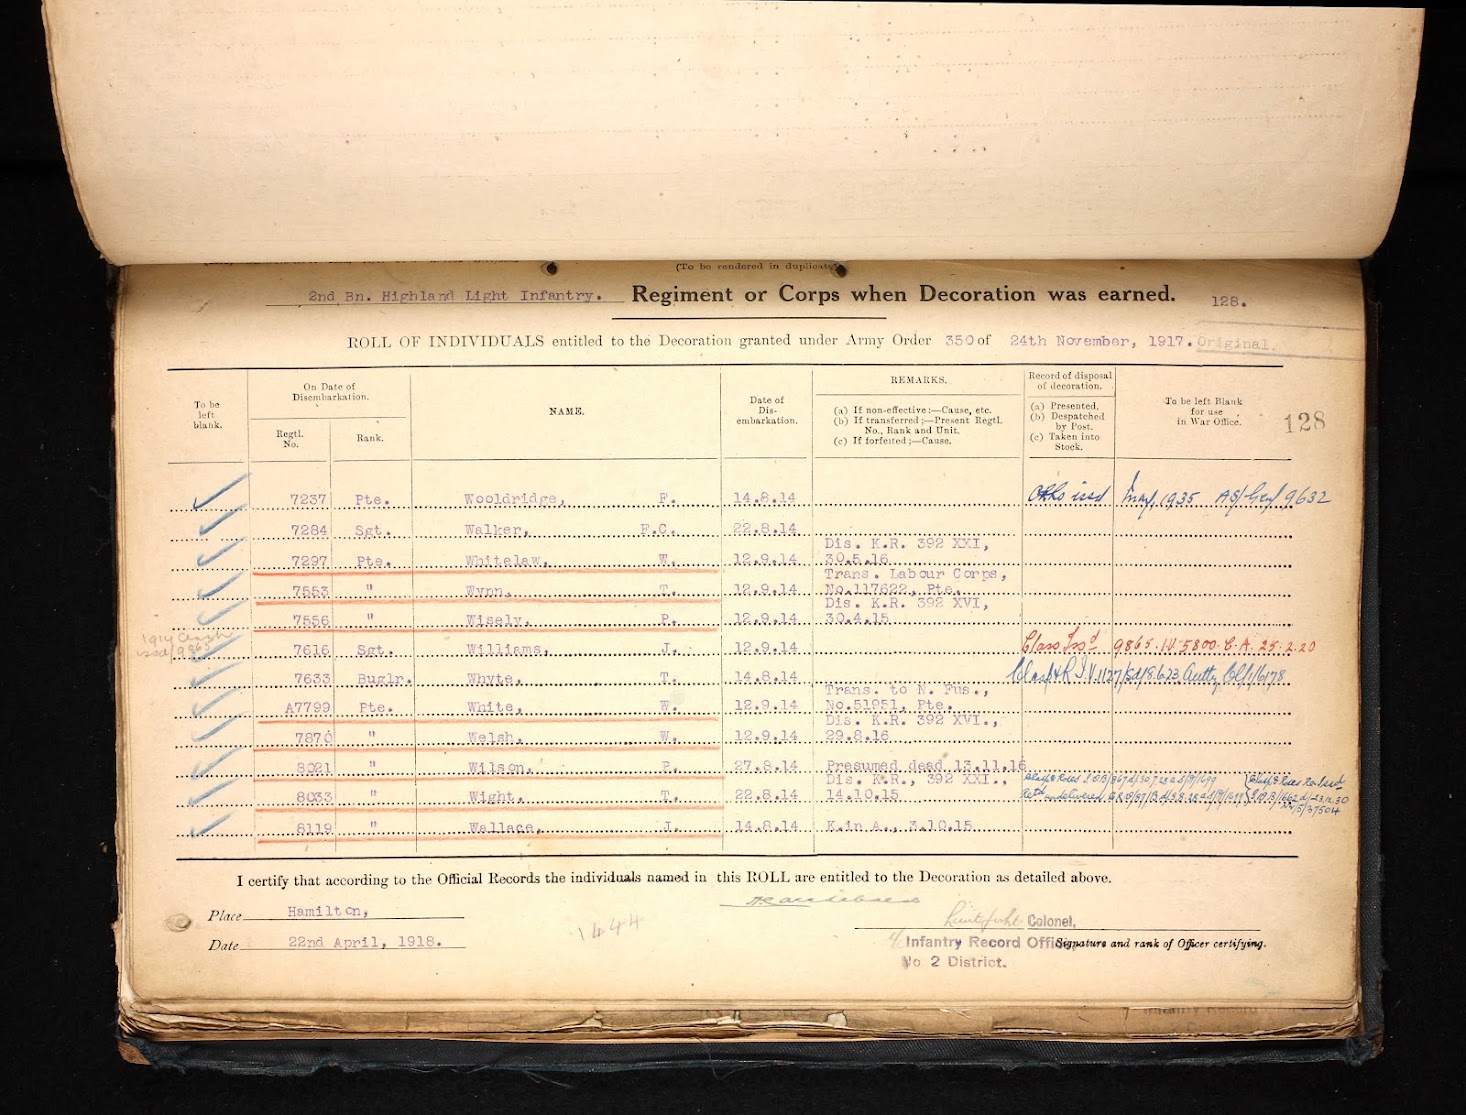 (To be rendered in duplicate)
2nd Bn. Highland Light Infantry. Regiment or Corps when Decoration was earned. 128.
ROLL OF INDIVIDUALS entitled to the Decoration granted under Army Order 350 of 24th November, 1917. Original.
To be left blank.
On Date of Disembarkation.
Regtl. No.
Rank.
NAME.
Date of Dis-embarkation.
REMARKS.
(a) If non-effective:—Cause, etc.
(b) If transferred:—Present Regtl. No., Rank and Unit.
(c) If forfeited;—Cause.
Record of disposal of decoration.
(a) Presented.
(b) Despatched by Post.
(c) Taken into Stock.
To be left Blank for use in War Office.
128
7237 Pte. Wooldridge, F. 14.8.14 issd May, 1935 AS/Gen/9632
7284 Sgt. Walker, F.C. 22.8.14
7297 Pte. Whitelaw, W. 12.9.14 Dis. K.R. 392 XXI, 30.5.16
7553 " Wynn, T. 12.9.14 Trans. Labour Corps, No.117622, Pte.
7556 " Wisely, P. 12.9.14 Dis. K.R. 392 XVI, 30.4.15
1914 Clasp issd/9865
7616 Sgt. Williams, J. 12.9.14 Clasp Issd 9865.I.V.5800.E.A.25.2.20
7633 Buglr. Whyte, T. 14.8.14 Clasp & R I.V.1127/
A7799 Pte. White, W. 12.9.14 Trans. to N. Fus., No.51951, Pte.
7870 " Welsh, W. 12.9.14 Dis. K.R. 392 XVI., 29.8.16
8021 " Wilson, P. 27.8.14 Presumed dead 13.11.16
8033 " Wight, T. 22.8.14 Dis. K.R., 392 XXI., 14.10.15 Clasp & Roses Retd undelivered Clasp & Roses Re-Issd
8119 " Wallace, J. 14.8.14 K.in A., 3.10.15
I certify that according to the Official Records the individuals named in this ROLL are entitled to the Decoration as detailed above.
Place Hamilton,
Colonel,
Date 22nd April, 1918.
1444
Infantry Record Office
Signature and rank of Officer certifying.
No 2 District.
Infantry Record